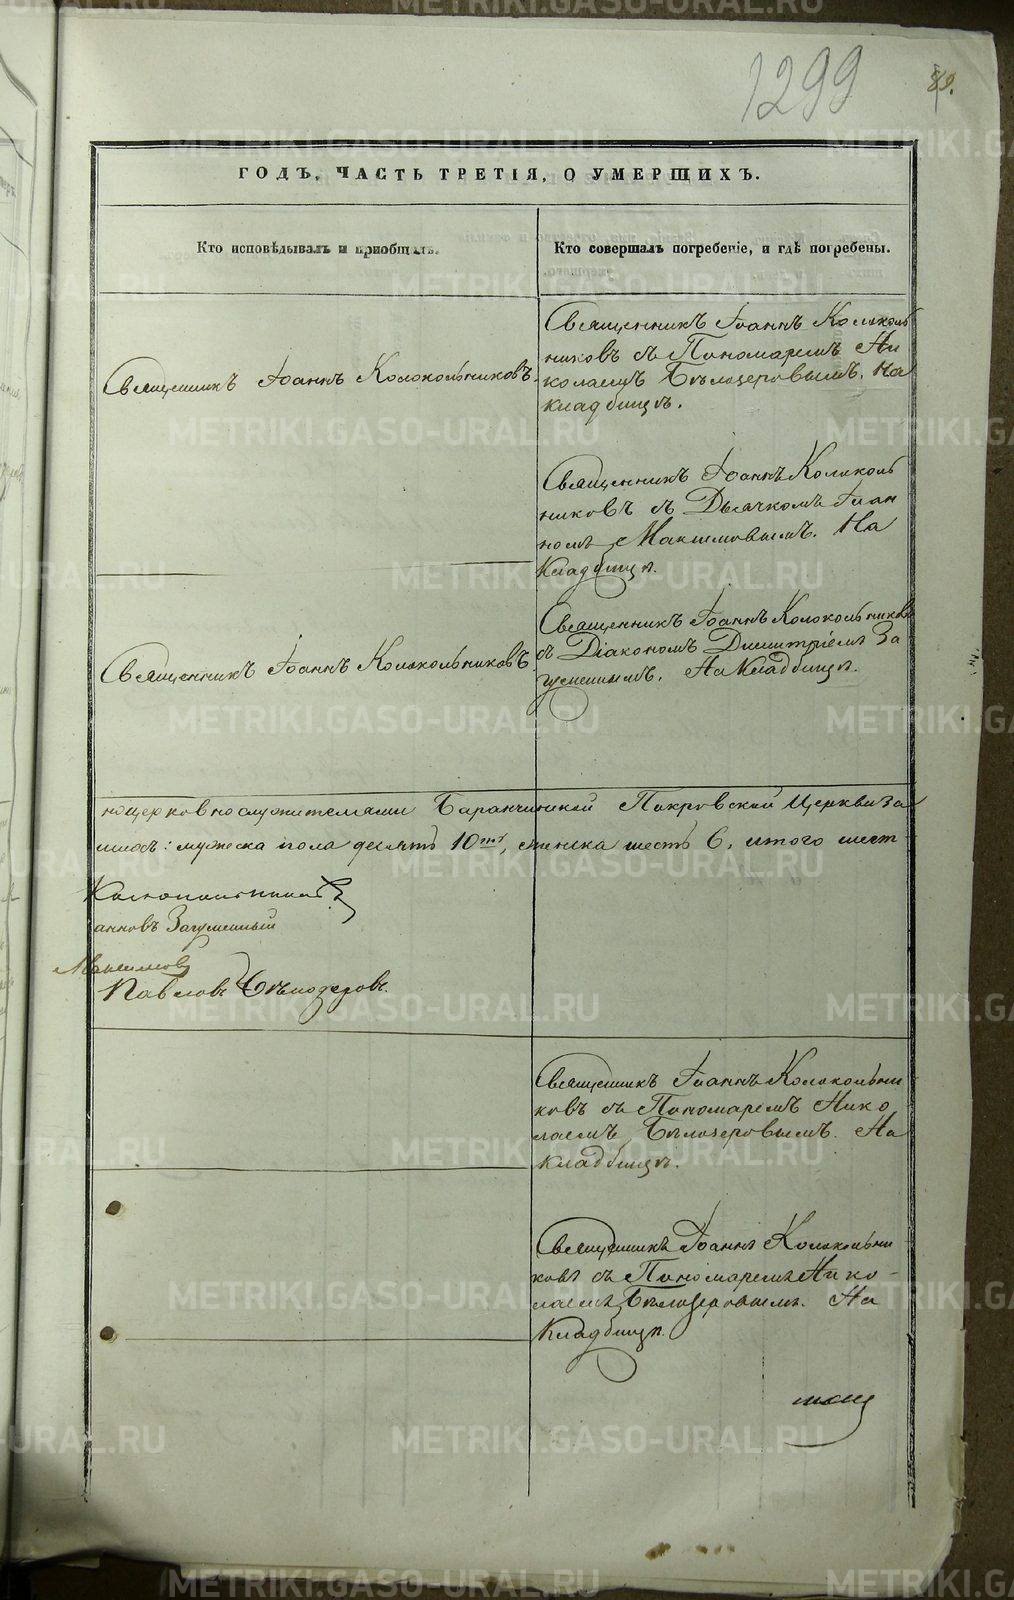 1299
89.
ГОДЪ, ЧАСТЬ ТРЕТІЯ, О УМЕРШИХЪ.
Кто исповѣдывалъ и приобщалъ.
Кто совершалъ погребеніе, и гдѣ погребены.
Священникъ Іоаннъ Колокольниковъ.
Священникъ Іоаннъ Коликоль
никовъ съ Пономаремъ Ни
колаемъ Бѣлозеровымъ. На
кладбищѣ.
Священникъ Іоаннъ Коликоль
никовъ съ Дьячкомъ Іоан
номъ Максимовымъ. На
Кладбищѣ.
Священникъ Іоаннъ Колокольниковъ
Священникъ Іоаннъ Колокольниковъ
съ Діакономъ Димитріемъ За
гуменнымъ. На Кладбищѣ.
ноцерковнослужителями Баранчинской Покровской Церкви за
мужеска пола десять 10ть, женска шесть 6, итого шест
Колокольниковъ
анновъ Загуменный
Максимовъ
Павловъ Бѣлозеровъ.
Священникъ Іоаннъ Колокольни
ковъ съ Пономаремъ Нико
лаемъ Бѣлозеровымъ. На
кладбищѣ.
Священникъ Іоаннъ Колокольни
ковъ съ Пономаремъ Нико-
лаемъ Бѣлозеровымъ. На
Кладбищѣ.
METRIKI.GASO-URAL.RU